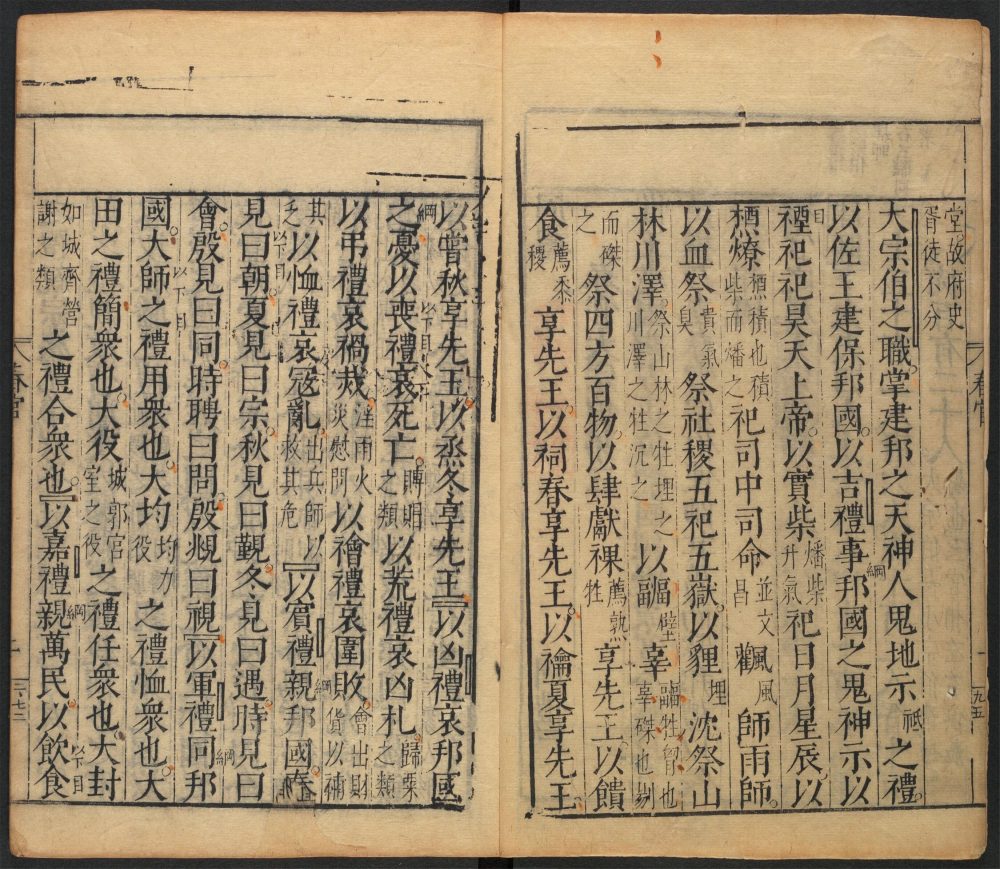 堂故府史胥徒不分
大宗伯之職掌建邦之天神人鬼地示祗之禮
以佐王建保邦國以吉禮綱事邦國之鬼神示以
目禋祀祀昊天上帝以實柴燔柴升氣祀日月星辰以
槱燎槱積也積柴而燔之祀司中司命並文昌飌風師雨師
以血祭貴氣臭祭社稷五祀五嶽以貍埋沈祭山
林川澤祭山林之牲埋之川澤之牲沉之以疈辜疈牲胷也辜磔也剔
而磔之祭四方百物以肆獻祼薦熟牲享先王以饋
食薦黍稷享先王以祠春享先王以禴夏享先王
以嘗秋享先王以烝冬享先王以凶禮哀邦國
綱之憂以喪禮哀死亡賻賵之類以荒禮哀凶札歸粟之類
以弔禮哀禍烖注雨火災慰問以禬禮哀圍敗會出財貨以補
其乏以恤禮哀寇亂出兵師以救其危以賓禮綱親邦國春
見曰朝夏見曰宗秋見曰覲冬見曰遇時見曰
會殷見曰同時聘曰問殷覜曰視以軍禮綱同邦
國以下目大師之禮用衆也大均均力役之禮恤衆也大
田之禮簡衆也大役城郭宮室之役之禮任衆也大封
如城齊營謝之類之禮合衆也以嘉禮綱親萬民以下目以飲食
春官
九五
春官
七二